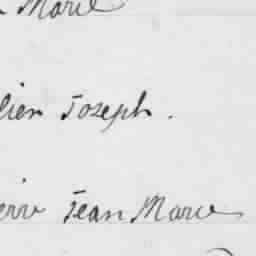 Marie
lien Joseph.
erre Jean Marie